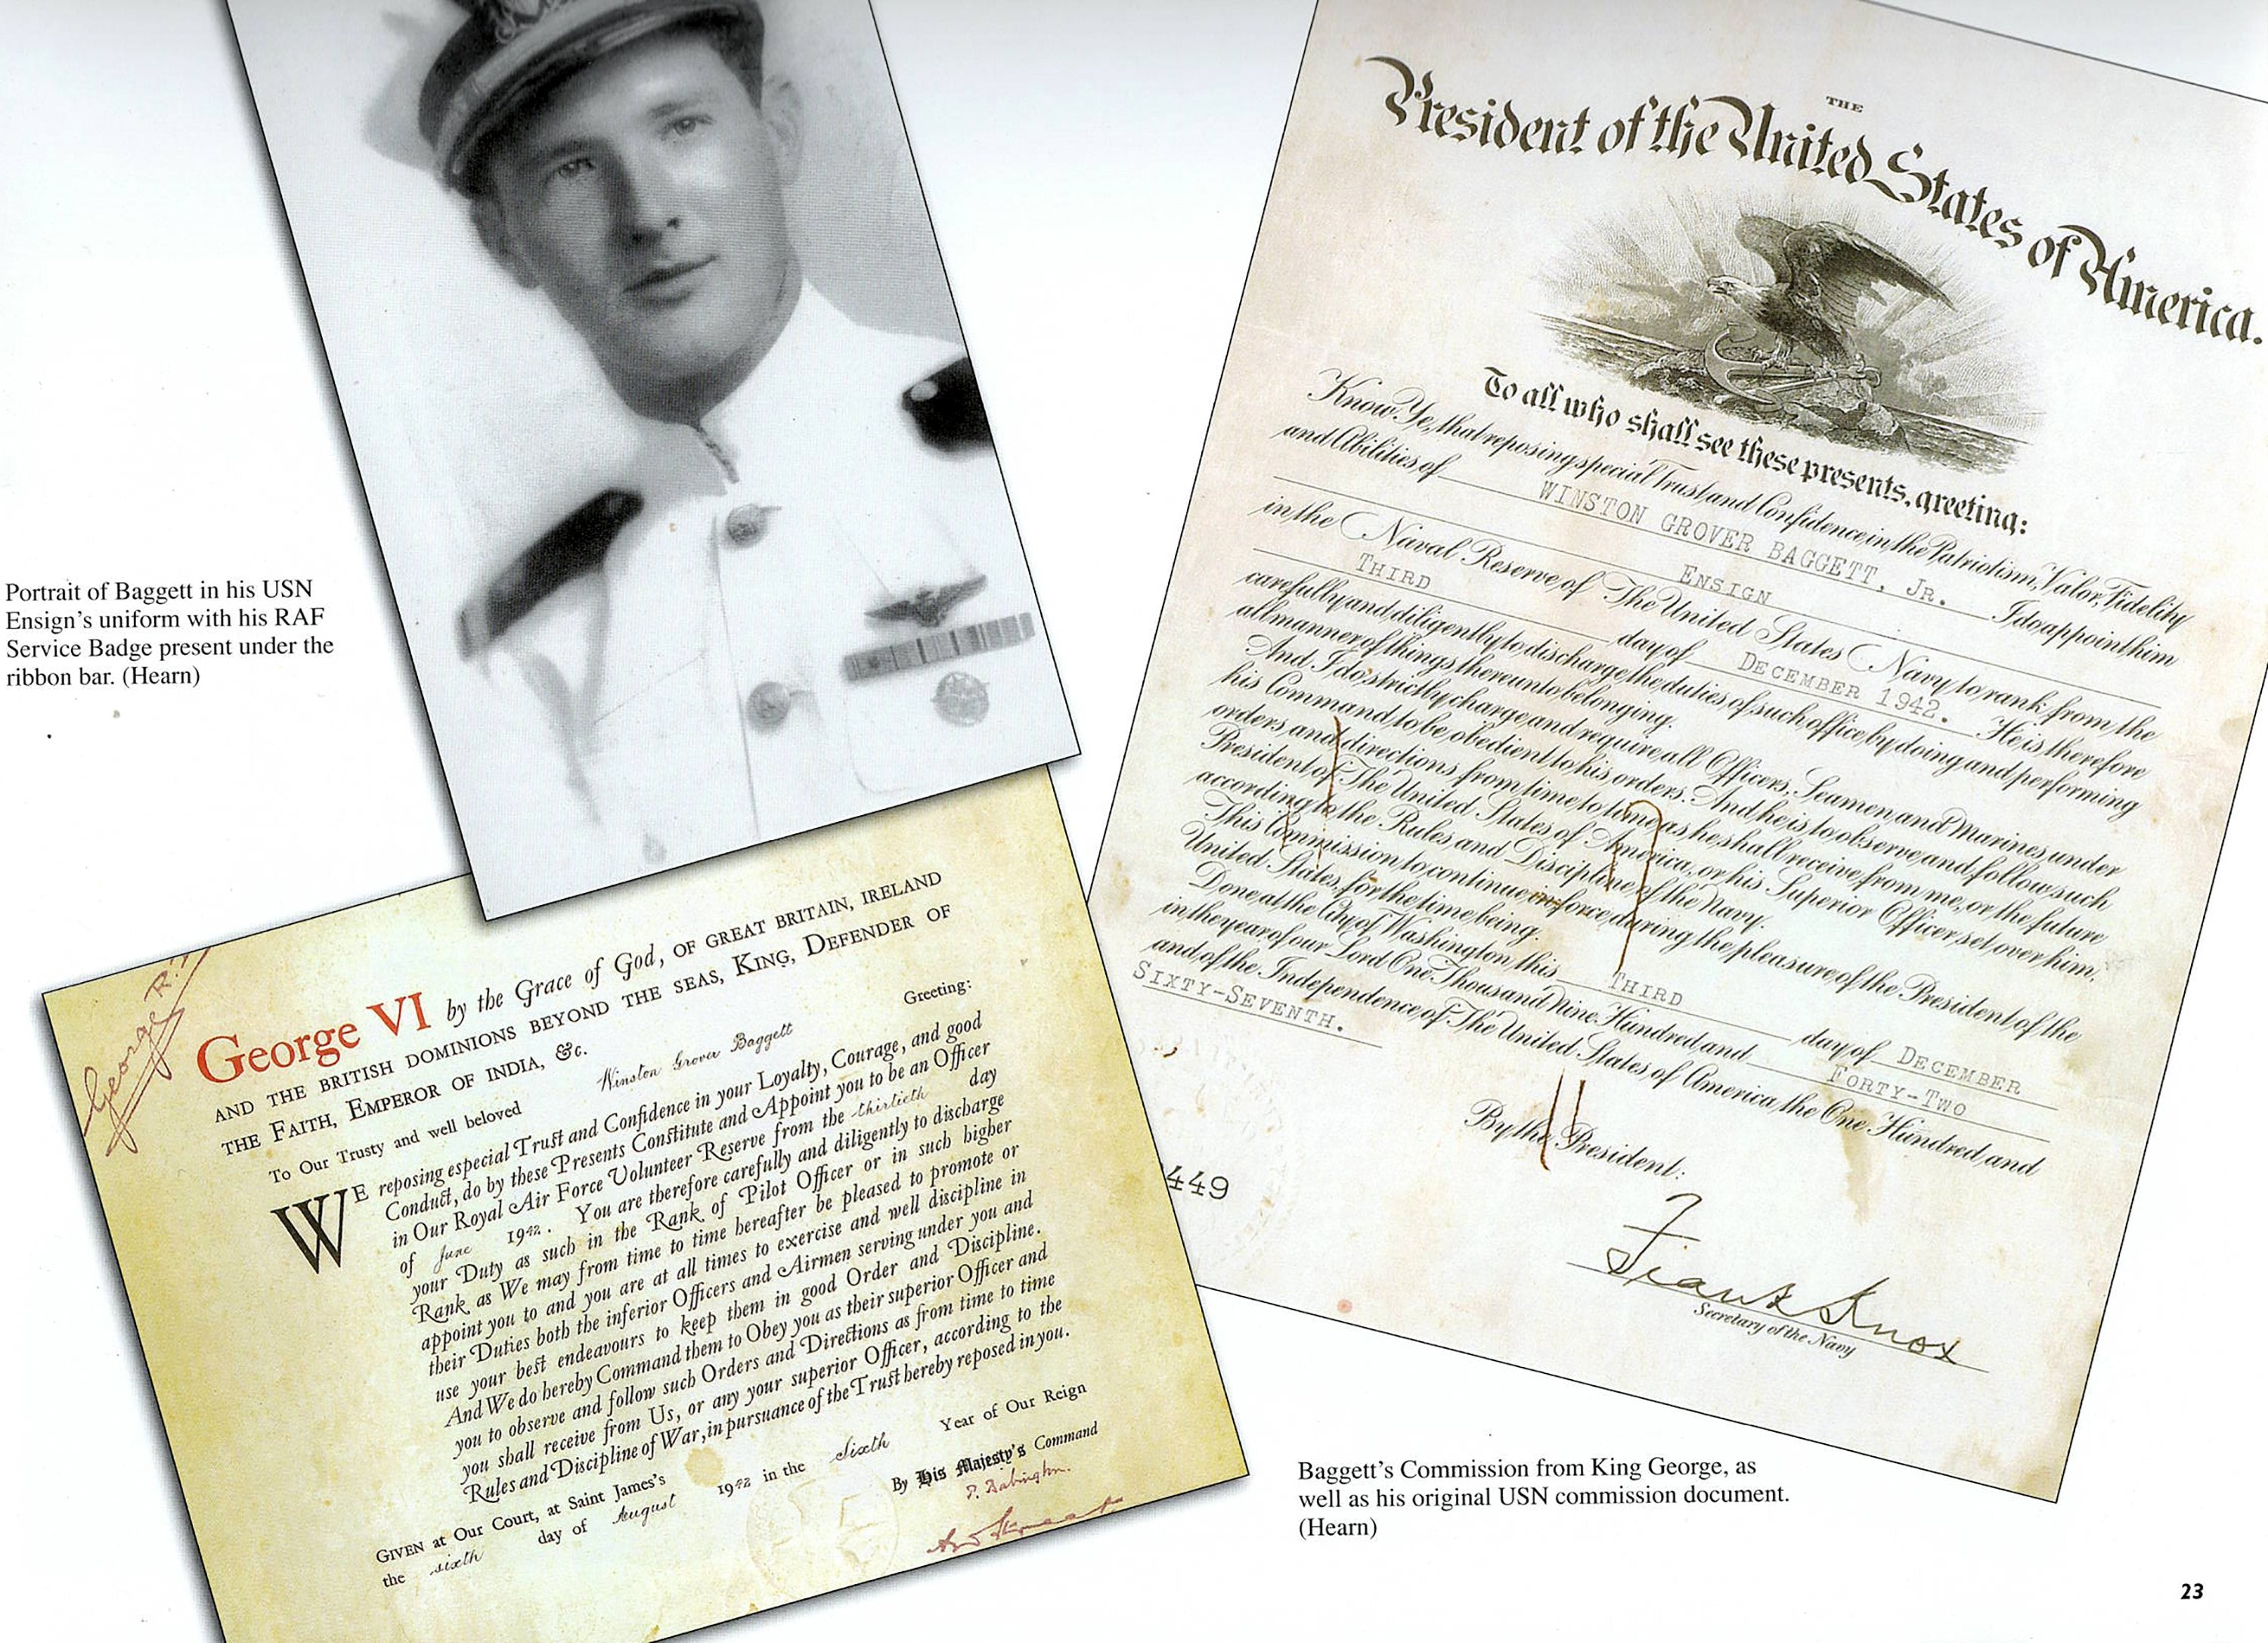 Portrait of Baggett in his USN
Ensign's uniform with his RAF
Service Badge present under the
ribbon bar. (Hearn)
George R.I.
George VI by the Grace of God, OF GREAT BRITAIN, IRELAND
AND THE BRITISH DOMINIONS BEYOND THE SEAS, KING, DEFENDER OF
THE FAITH, EMPEROR OF INDIA, &c.
To Our Trusty and well beloved Winston Grover Baggett Greeting:
WE reposing especial Trust and Confidence in your Loyalty, Courage, and good
Conduct, do by these Presents Constitute and Appoint you to be an Officer
in Our Royal Air Force Volunteer Reserve from the thirtieth day
of June 1942. You are therefore carefully and diligently to discharge
your Duty as such in the Rank of Pilot Officer or in such higher
Rank as We may from time to time hereafter be pleased to promote or
appoint you to and you are at all times to exercise and well discipline in
their Duties both the inferior Officers and Airmen serving under you and
use your best endeavours to keep them in good Order and Discipline.
And We do hereby Command them to Obey you as their superior Officer and
you to observe and follow such Orders and Directions as from time to time
you shall receive from Us, or any your superior Officer, according to the
Rules and Discipline of War, in pursuance of the Trust hereby reposed in you.
GIVEN at Our Court, at Saint James's
the sixth day of August 1942 in the Sixth Year of Our Reign
By His Majesty's Command
THE
President of the United States of America.
To all who shall see these presents, greeting:
Know Ye, that reposing special Trust and Confidence in the Patriotism, Valor, Fidelity
and Abilities of WINSTON GROVER BAGGETT, JR. I do appoint him
ENSIGN
in the Naval Reserve of The United States Navy to rank from the
THIRD day of DECEMBER 1942. He is therefore
carefully and diligently to discharge the duties of such office by doing and performing
all manner of things thereunto belonging.
And I do strictly charge and require all Officers, Seamen and Marines under
his Command to be obedient to his orders. And he is to observe and follow such
orders and directions from time to time as he shall receive from me, or the future
President of The United States of America, or his Superior Officer set over him,
according to the Rules and Discipline of the Navy.
This Commission to continue in force during the pleasure of the President of the
United States, for the time being.
Done at the City of Washington this THIRD day of DECEMBER
in the year of our Lord One Thousand Nine Hundred and FORTY-TWO
and of the Independence of The United States of America the One Hundred and
SIXTY-SEVENTH.
By the President:
449
Frank Knox
Secretary of the Navy
Baggett's Commission from King George, as
well as his original USN commission document.
(Hearn)
23